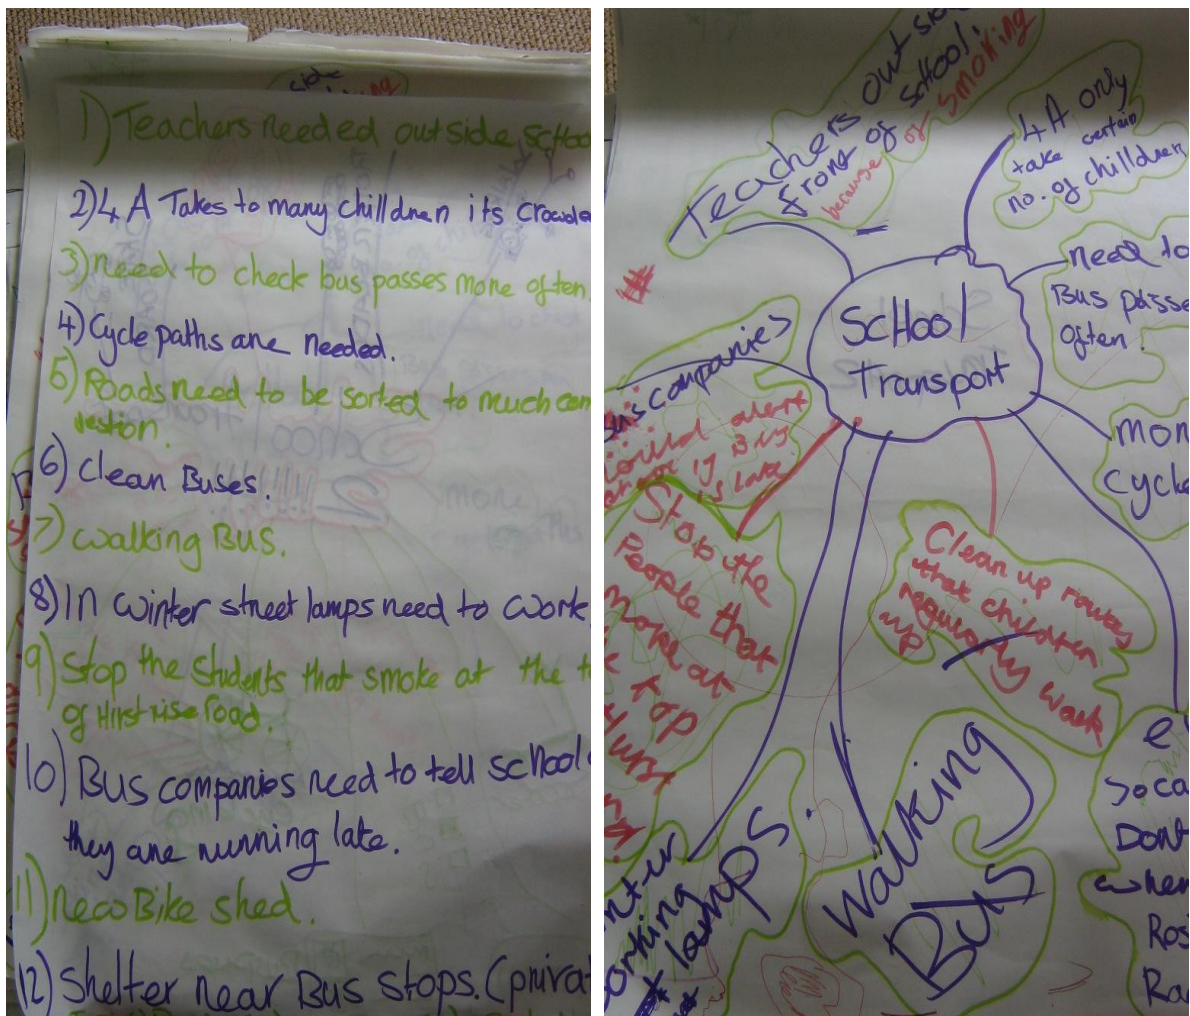 1) Teachers needed outside schoo
2) 4 A Takes to many chilldren its crowde
3) need to check bus passes more often.
4) Cycle paths are needed.
5) Roads need to be sorted to much con
estion.
6) Clean Buses.
7) walking Bus.
8) In winter street lamps need to work.
9) Stop the students that smoke at the t
of Hirst rise road.
10) Bus companies need to tell school
they are running late.
11) new Bike shed.
12) Shelter near Bus stops. (privat
Teachers out sid
front of school!
because of smoking
4 A only
take certain
no. of chilldren
need to
Bus passe
often.
School
Transport
Bus companies
should alert
if Bus
is late
mor
Cycle
Stop the
People that
smoke at
top
Hirst
Clean up routes
that children
regularly walk
up
Walking
Bus
winter
working
lamps.
e
So ca
Dont
when
Ros
Ra